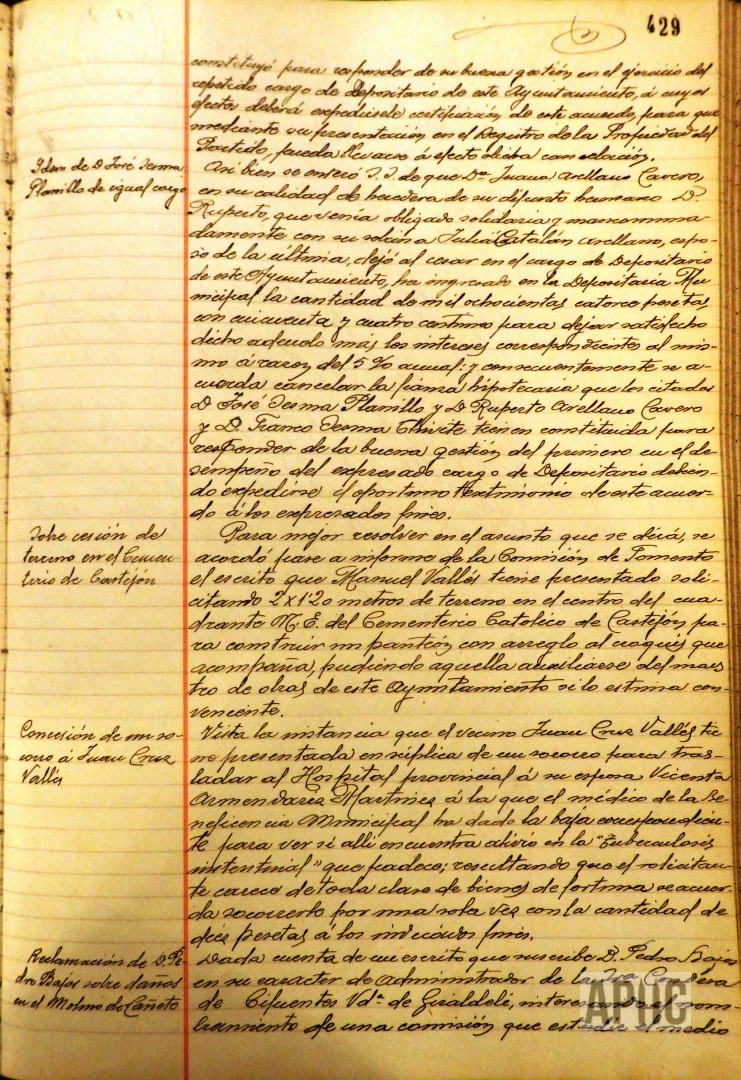 429
constituyó para responder de su buena gestión en el ejercicio del
repetido cargo de Depositario de este Ayuntamiento, á cuyos
efectos deberá expedírsele certificación de este acuerdo, para que
mediante su presentación en el Registro de la Propiedad del
Partido, pueda llevarse á efecto dicha cancelación.
Idem de D José Lesma
Planillo de igual cargo
Asi bien se enteró S.S. de que Dª Juana Arellano Cavero,
en su calidad de heredera de su difunto hermano D.
Ruperto, que venía obligado solidaria y mancomuna
damente con su sobrina Julia Catalán Arellano, espo-
so de la última, dejó al cesar en el cargo de Depositario
de este Ayuntamiento, ha ingresado en la Depositaría Mu
nicipal la cantidad de mil ochocientas catorce pesetas,
con cincuenta y cuatro centimos para dejar satisfecho
dicho adeudo más los intereses correspondientes al mis-
mo á razon del 5 % anual: y consecuentemente se a-
cuerda cancelar la fianza hipotecaria que los citados
D José Lesma Planillo y D Ruperto Arellano Cavero
y D. Franco Lesma tienen constituida para
responder de la buena gestión del primero en el de-
sempeño del expresado cargo de Depositario debien-
do expedirse el oportuno testimonio de este acuer-
do á los expresados fines.
Sobre cesión de
terreno en el Cemen-
terio de Castejón
Para mejor resolver en el asunto que se dirá, se
acordó pase a informe de la Comisión de Fomento
el escrito que Manuel Vallés tiene presentado soli-
citando 2 x 1'20 metros de terreno en el centro del cua-
drante N. E. del Cementerio Catolico de Castejón pa-
ra construir un panteón con arreglo al croquis que
acompaña, pudiendo aquella auxiliarse del maes
tro de obras de este Ayuntamiento si lo estima con-
veniente.
Concesión de un so-
corro á Juan Cruz
Vallés
Vista la instancia que el vecino Juan Cruz Vallés tie
ne presentada en súplica de un socorro para tras-
ladar al Hospital provincial á su esposa Vicenta
Armendariz Martinez á la que el médico de la Be-
neficencia Municipal ha dado la baja correspondien-
te para ver si alli encuentra alivio en la "Tuberculosis
intestinal" que padece; resultando que el solicitan-
te carece de toda clase de bienes de fortuna se acuer-
da socorrerlo por una sola vez con la cantidad de
diez pesetas á los indicados fines.
Reclamación de D. Pe-
dro Bajos sobre daños
en el Molino de Cañete
Dada cuenta de un escrito que suscribe D. Pedro Bajos
en su caracter de Administrador de la
de Cifuentes Vdª de Giraldeli, interesando el nom-
bramiento de una comisión que estudie el medio